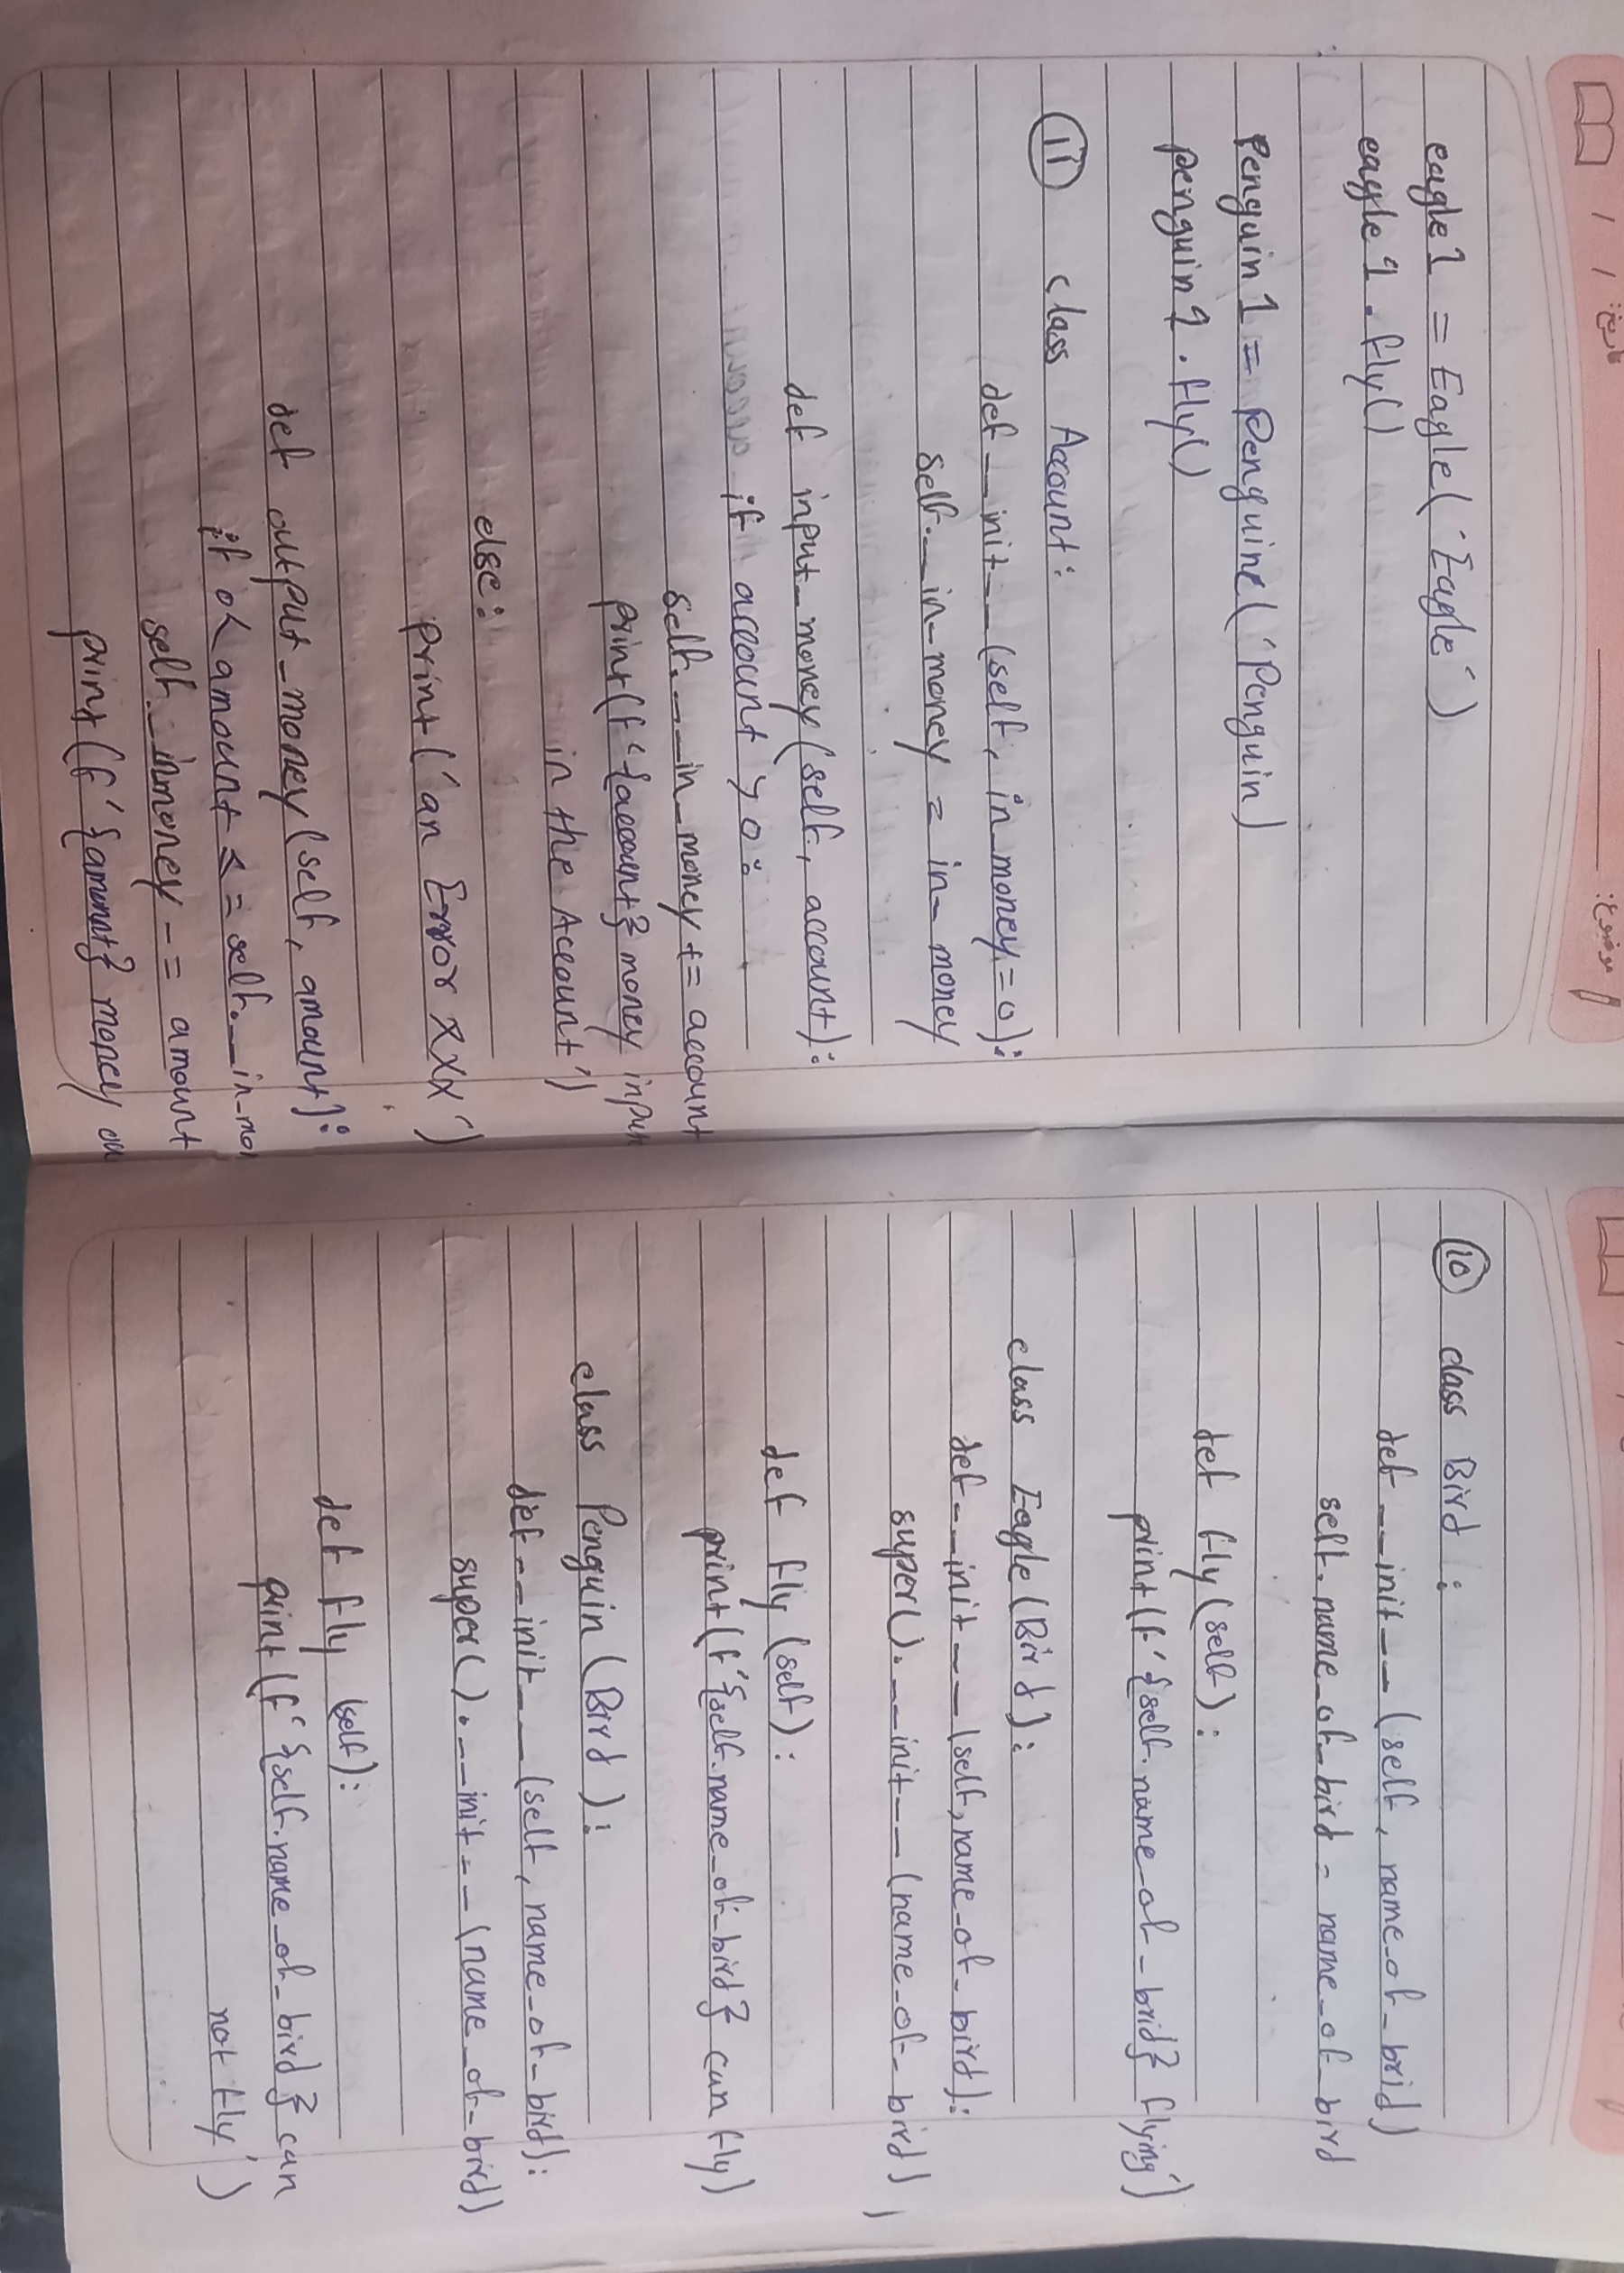 تاریخ: / /
موضوع:
eagle1 = Eagle('Eagle')
eagle1.fly()
Penguin1 = Penguine('Penguin)
penguin1.fly()
11 class Account:
def __init__(self, in_money=0):
self.__in_money = in_money
def input_money(self, account):
if account > 0:
self.__in_money += account
print(f'{account} money input
in the Account')
else:
print('an Error XXX')
def output_money(self, amount):
if 0 < amount <= self.__in_mo
self.__inmoney -= amount
print(f'{amount} money ou
10 class Bird:
def __init__(self, name_of_brid)
self.name_of_bird = name_of_bird
def fly(self):
print(f'{self.name_of_brid} flying')
class Eagle(Bird):
def __init__(self, name_of_bird):
super().__init__(name_of_bird)
def fly(self):
print(f'{self.name_of_bird} can fly)
class Penguin(Bird):
def __init__(self, name_of_bird):
super().__init__(name_of_bird)
def fly(self):
print(f'{self.name_of_bird} can
not fly')